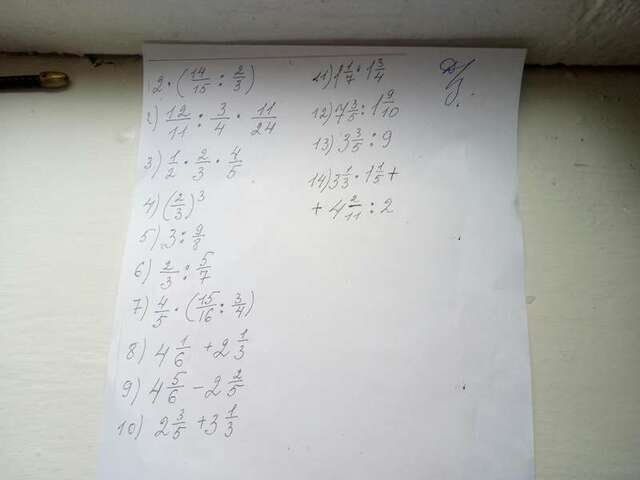 2 · (14/15 : 2/3)
2) 12/11 : 3/4 · 11/24
3) 1/2 · 2/3 · 4/5
4) (2/3)³
5) 3 : 9/8
6) 2/3 : 5/7
7) 4/5 · (15/16 : 3/4)
8) 4 1/6 + 2 1/3
9) 4 5/6 - 2 2/5
10) 2 3/5 + 3 1/3
11) 1 1/7 · 1 3/4
12) 7 3/5 : 1 9/10
13) 3 3/5 : 9
14) 3 1/3 · 1 1/5 +
+ 4 2/11 : 2